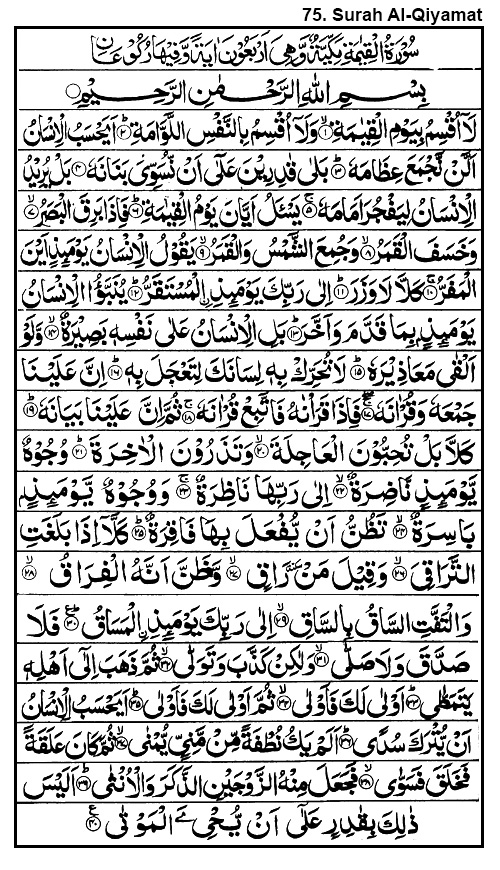 75. Surah Al-Qiyamat
سُوْرَةُ الْقِيٰمَةِ مَكِّيَّةٌ وَّهِىَ اَرْبَعُوْنَ اٰيَةً وَّفِيْهَا رُكُوْعَانِ
بِسْمِ اللهِ الرَّحْمٰنِ الرَّحِيْمِ
لَاۤ اُقْسِمُ بِيَوْمِ الْقِيٰمَةِۙ‏﴿۱﴾ وَلَاۤ اُقْسِمُ بِالنَّفْسِ اللَّوَّامَةِؕ‏﴿۲﴾ اَيَحْسَبُ الْاِنْسَانُ
اَلَّنْ نَّجْمَعَ عِظَامَهٗؕ‏﴿۳﴾ بَلٰى قٰدِرِيْنَ عَلٰٓى اَنْ نُّسَوِّىَ بَنَانَهٗ‏﴿۴﴾ بَلْ يُرِيْدُ
الْاِنْسَانُ لِيَفْجُرَ اَمَامَهٗۚ‏﴿۵﴾ يَسْئَلُ اَيَّانَ يَوْمُ الْقِيٰمَةِؕ‏﴿۶﴾ فَاِذَا بَرِقَ الْبَصَرُۙ‏﴿۷﴾
وَخَسَفَ الْقَمَرُۙ‏﴿۸﴾ وَجُمِعَ الشَّمْسُ وَالْقَمَرُۙ‏﴿۹﴾ يَقُوْلُ الْاِنْسَانُ يَوْمَئِذٍ اَيْنَ
الْمَفَرُّۚ‏﴿۱۰﴾ كَلَّا لَا وَزَرَؕ‏﴿۱۱﴾ اِلٰى رَبِّكَ يَوْمَئِذِ ࣙالْمُسْتَقَرُّؕ‏﴿۱۲﴾ يُنَبَّؤُا الْاِنْسَانُ
يَوْمَئِذٍۢ بِمَا قَدَّمَ وَاَخَّرَؕ‏﴿۱۳﴾ بَلِ الْاِنْسَانُ عَلٰى نَفْسِهٖ بَصِيْرَةٌۙ‏﴿۱۴﴾ وَّلَوْ
اَلْقٰى مَعَاذِيْرَهٗؕ‏﴿۱۵﴾ لَا تُحَرِّكْ بِهٖ لِسَانَكَ لِتَعْجَلَ بِهٖؕ‏﴿۱۶﴾ اِنَّ عَلَيْنَا
جَمْعَهٗ وَقُرْاٰنَهٗۚ‏﴿۱۷﴾ فَاِذَا قَرَاْنٰهُ فَاتَّبِعْ قُرْاٰنَهٗۚ‏﴿۱۸﴾ ثُمَّ اِنَّ عَلَيْنَا بَيَانَهٗؕ‏﴿۱۹﴾
كَلَّا بَلْ تُحِبُّوْنَ الْعَاجِلَةَۙ‏﴿۲۰﴾ وَتَذَرُوْنَ الْاٰخِرَةَؕ‏﴿۲۱﴾ وُجُوْهٌ
يَّوْمَئِذٍ نَّاضِرَةٌۙ‏﴿۲۲﴾ اِلٰى رَبِّهَا نَاظِرَةٌۚ‏﴿۲۳﴾ وَوُجُوْهٌ يَّوْمَئِذٍۢ
بَاسِرَةٌۙ‏﴿۲۴﴾ تَظُنُّ اَنْ يُّفْعَلَ بِهَا فَاقِرَةٌؕ‏﴿۲۵﴾ كَلَّاۤ اِذَا بَلَغَتِ
التَّرَاقِىَۙ‏﴿۲۶﴾ وَقِيْلَ مَنْ رَاقٍۙ‏﴿۲۷﴾ وَّظَنَّ اَنَّهُ الْفِرَاقُۙ‏﴿۲۸﴾
وَالْتَفَّتِ السَّاقُ بِالسَّاقِۙ‏﴿۲۹﴾ اِلٰى رَبِّكَ يَوْمَئِذِ ࣙالْمَسَاقُؕ‏﴿۳۰﴾ فَلَا
صَدَّقَ وَلَا صَلّٰىۙ‏﴿۳۱﴾ وَلٰكِنْ كَذَّبَ وَتَوَلّٰىۙ‏﴿۳۲﴾ ثُمَّ ذَهَبَ اِلٰٓى اَهْلِهٖ
يَتَمَطّٰىؕ‏﴿۳۳﴾ اَوْلٰى لَكَ فَاَوْلٰىۙ‏﴿۳۴﴾ ثُمَّ اَوْلٰى لَكَ فَاَوْلٰىؕ‏﴿۳۵﴾ اَيَحْسَبُ الْاِنْسَانُ
اَنْ يُّتْرَكَ سُدًىؕ‏﴿۳۶﴾ اَلَمْ يَكُ نُطْفَةً مِّنْ مَّنِىٍّ يُّمْنٰىۙ‏﴿۳۷﴾ ثُمَّ كَانَ عَلَقَةً
فَخَلَقَ فَسَوّٰىۙ‏﴿۳۸﴾ فَجَعَلَ مِنْهُ الزَّوْجَيْنِ الذَّكَرَ وَالْاُنْثٰىؕ‏﴿۳۹﴾ اَلَيْسَ
ذٰلِكَ بِقٰدِرٍ عَلٰٓى اَنْ يُّحْيِۦَ الْمَوْتٰى‏﴿۴۰﴾